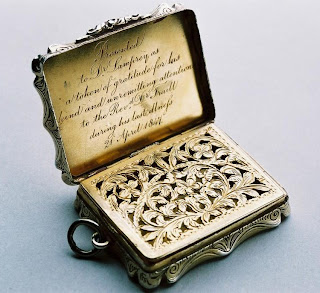 Presented
to Dr Lamfrey as
a token of gratitude for his
kind and unremitting attention
to the Revd Dr
during his last illness
21 April 1857